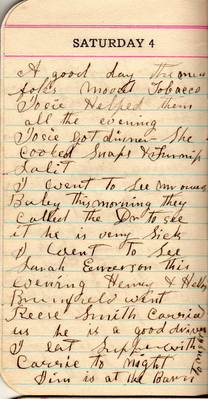 SATURDAY 4
A good day the men
folks moved Tobacco
Josie Helped them
all the evening
Josie got dinner She
cooked Snaps & Turnip
Salit
I went to see
Baby this morning they
called the Dr to see
it he is very Sick
I Went to See
Sarah Emerson this
evening Henry &
went
Reese Smith Carried
us he is a good driver
I eat Supper with
Carrie to night
Jim is at the Barn
to night